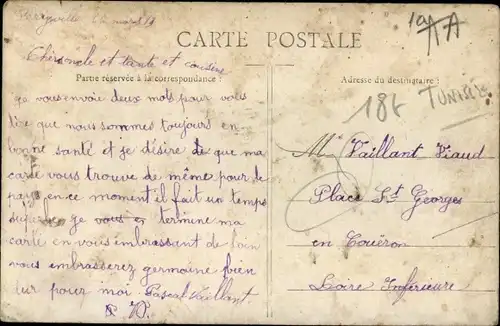 Ferryville
Cher oncle et tante et cousine
CARTE POSTALE
Partie réservée à la correspondance :
Adresse du destinataire :
ge vous envoie deux mots pour vous
dire que nous sommes toujours en
bonne santé et je désire de que ma
carte vous trouve de même pour le
pays en ce moment il fait un temps
superbe ge vous termine ma
carte en vous embrassant de loin
vous embrasserez germaine bien
fur pour moi Pascal Vaillant
P V.
186
TUNISIE
Vaillant Viaud
Place St Georges
en Couëron
Loire Inférieure